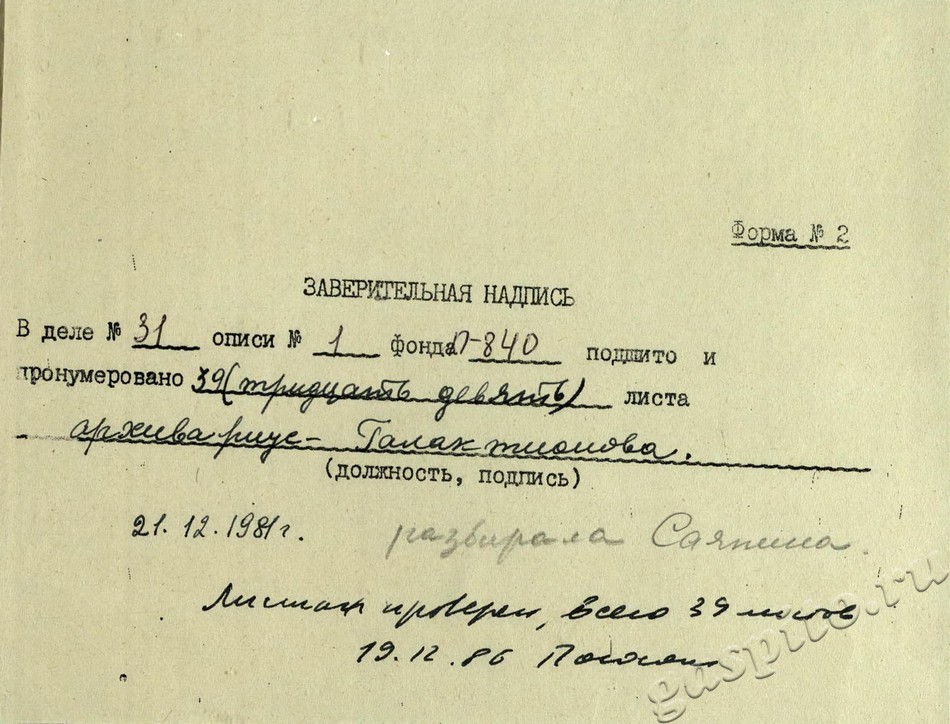 Форма № 2
ЗАВЕРИТЕЛЬНАЯ НАДПИСЬ
В деле № 31 описи № 1 фонда П-840 подшито и
пронумеровано 39 (тридцать девять) листа
архивариус - Галактионова.
(должность, подпись)
21.12.1981г. разбирала Саяпина.
Листаж проверен, всего 39 листов
19.12.86
gaspito.ru